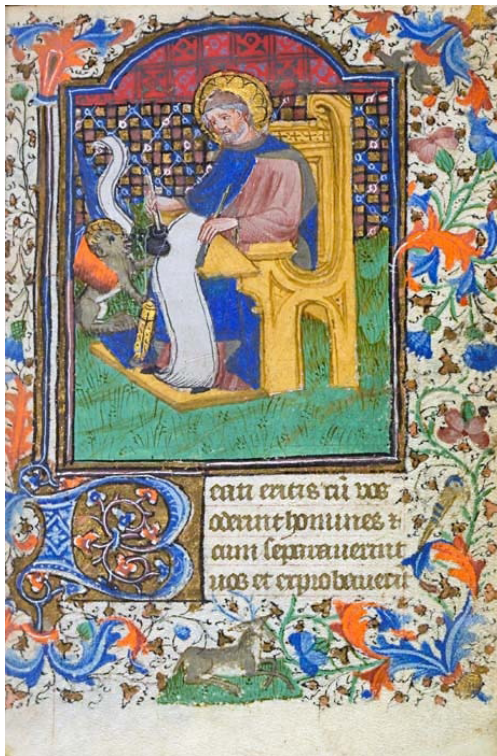 Beati eritis cū vos
oderint homines ⁊
cum separauerint
uos et exprobauerīt